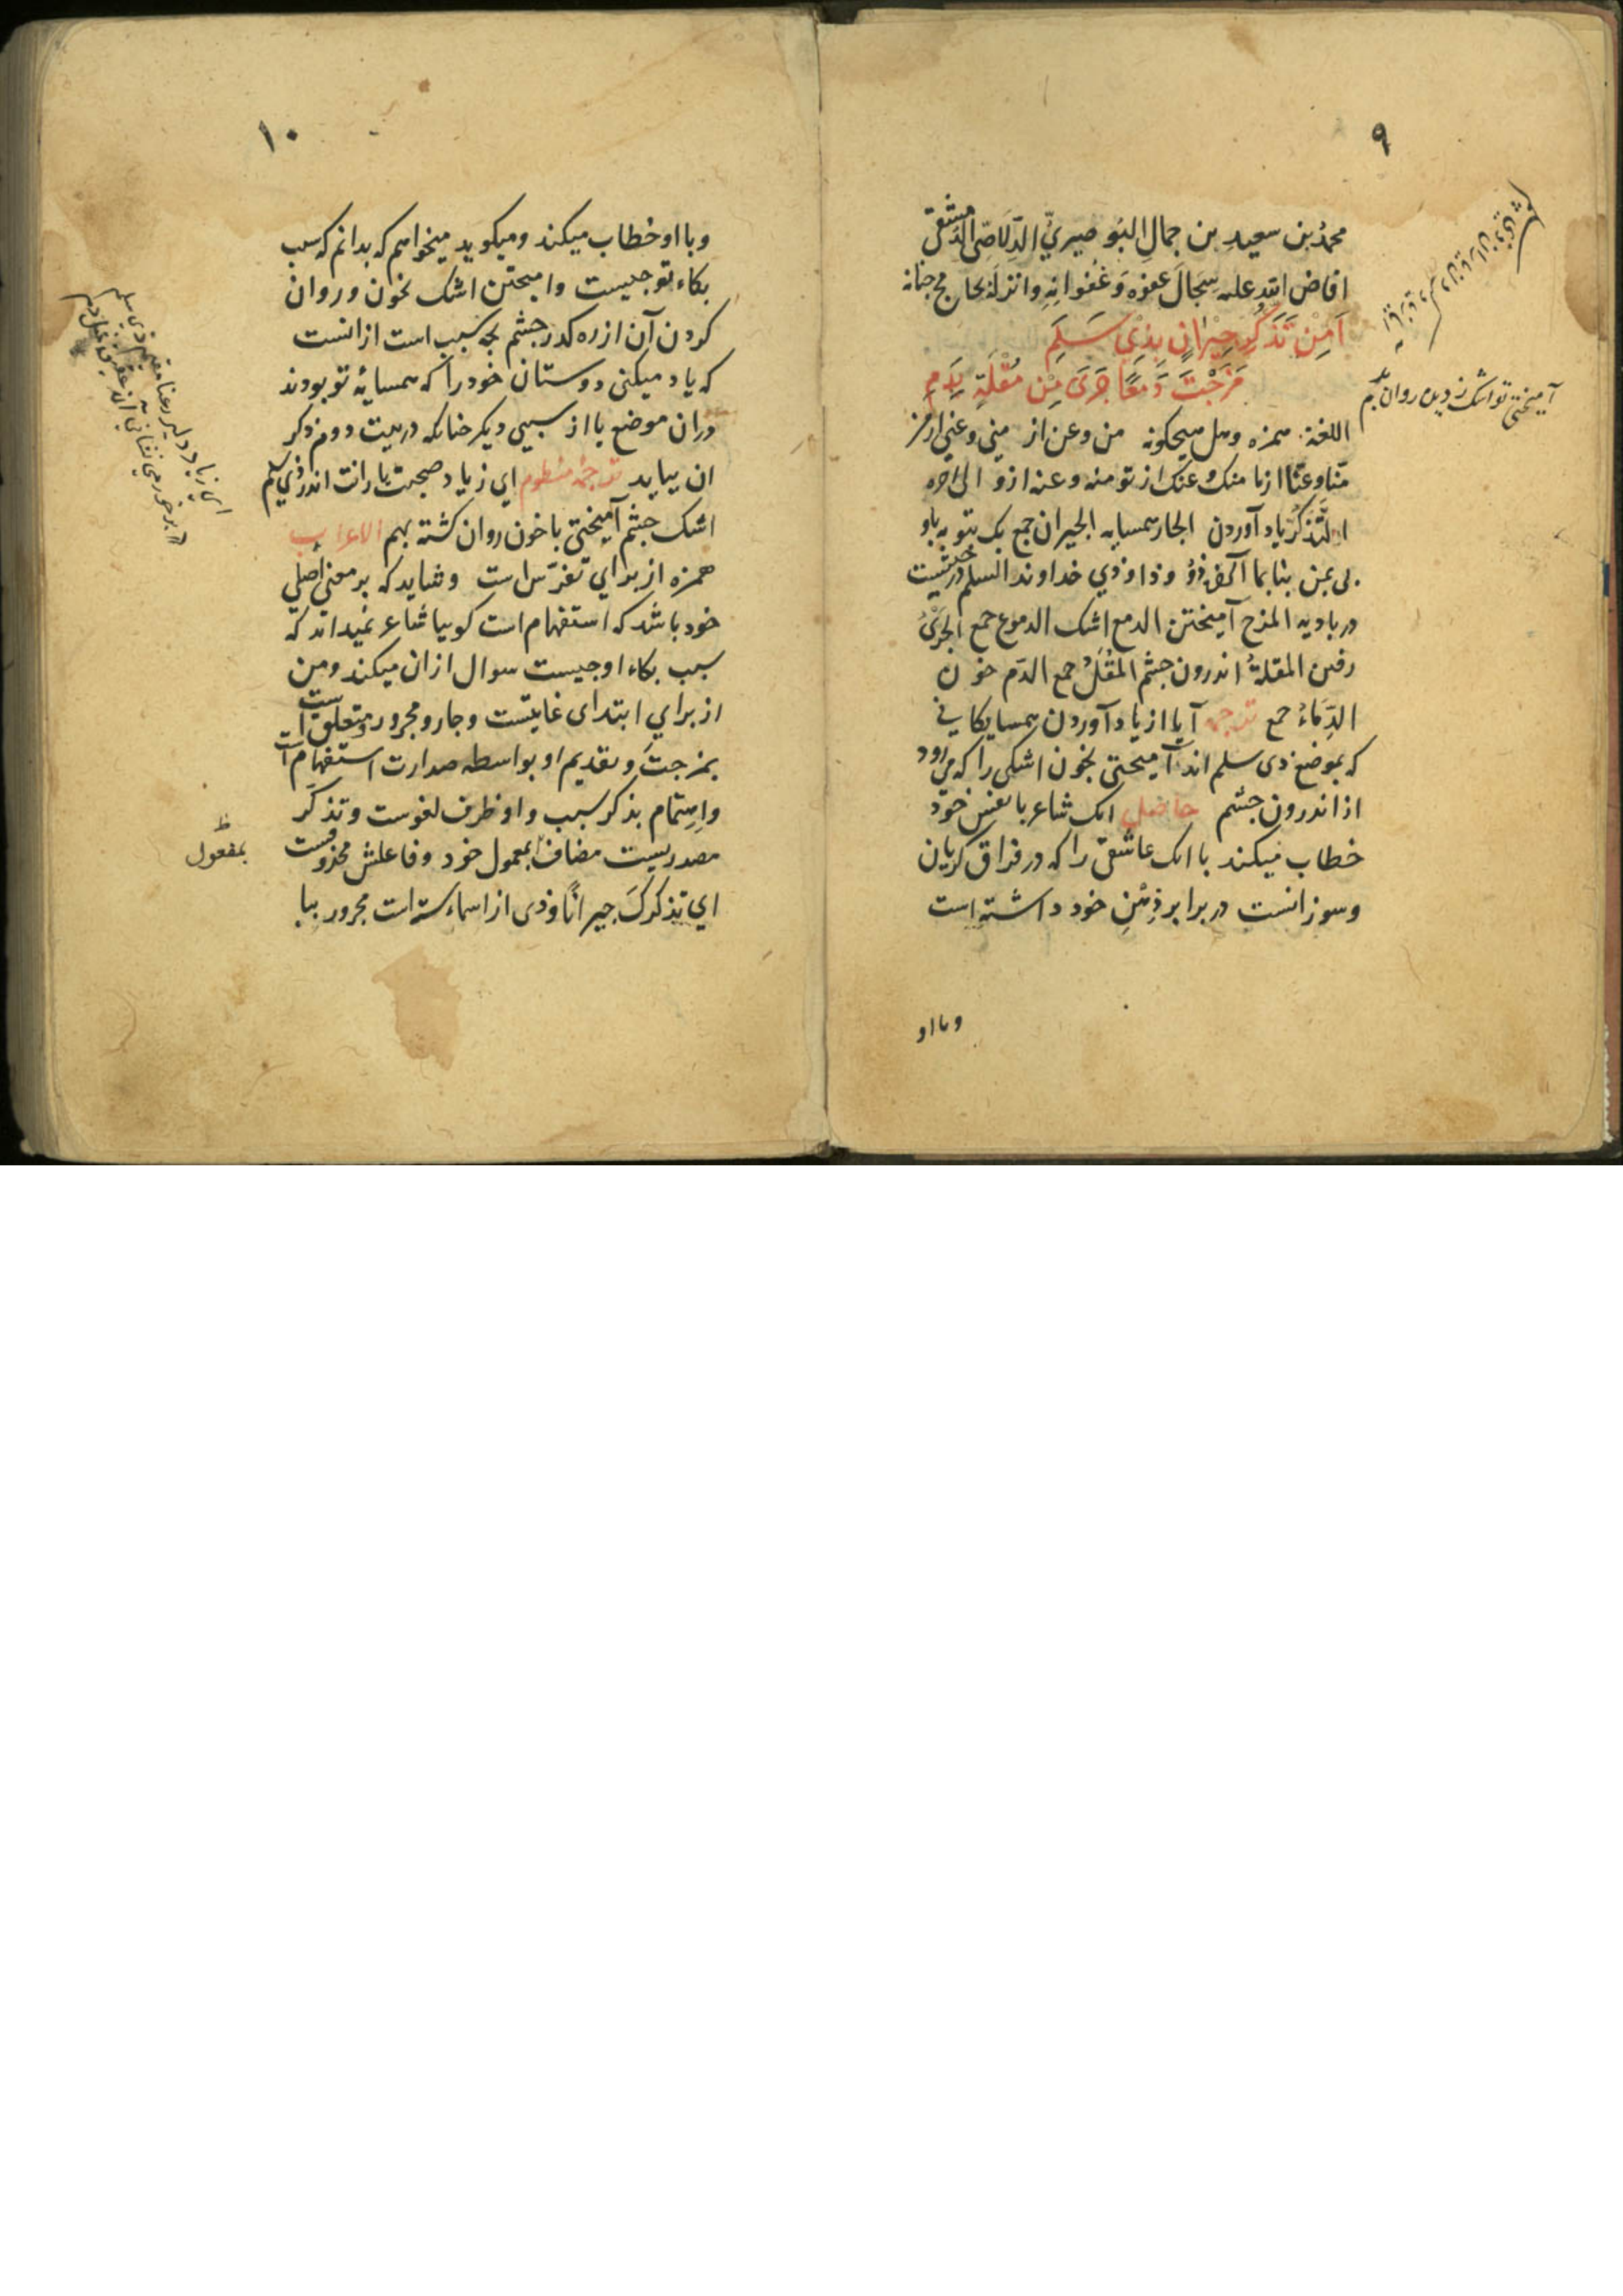 ۹
محمدُ بن سعیدِ بن جمالِ البُو صیریِّ الدِّلَاصِی الدمشقی
افاض الله علیه سِجَالَ عفوَه وَ غُفْوَانِهِ و انزله بحابح جنانه
اَمِنْ تَذَکُّرِ جِیْرَانٍ بِذِیْ سَلَمِ
مَزَجْتَ دَمعًا جَرَی مِنْ مُقْلَةٍ بِدَمِ
اللغة همزه و هل هیچکونه من و عن از منی و عنی از من
منّا و عنّا از ما منک و عنک از تو منه و عنه از و الی اخره
التَّذکُّر یاد آوردن الجار همسایه الجیران جمع بک بتو به باو
بی بمن بنا بما ذُو و ذا و ذی خداوند السلم درختیست
در بادیه المزج آمیختن الدمع اشک الدموع جمع الجَرْیُ
رفتن المقلةُ اندرون چشم المُقَلُ جمع الدّم خون
الدِّمَاءُ جمع ترجمه آیا از یاد آوردن همسایکانی
که بموضع ذی سلم اند آمیختی بخون اشکی را که می رود
از اندرون چشم حاصل انک شاعر با نفس خود
خطاب میکند با انک عاشقی را که در فراق کریان
و سوزانست در برابر ذِهْنِ خود داشته است
و با او
آمیختی تو اشک ز دیده روان بدم
۱۰
و با او خطاب میکند و میکوید میخواهم که بدانم که سبب
بکاء تو چیست و امیختن اشک بخون و روان
کردن آن از ره کدر چشم بچه سبب است از انست
که یاد میکنی دوستان خود را که همسایه تو بودند
دران موضع یا از سببی دیکر چنانکه در بیت دوم ذکر
ان بیاید ترجمه منظوم ای ز یاد صحبت یارانت اندر ذی سلم
اشک چشم آمیختی با خون روان کشته بهم الاعراب
همزه از برای تفرّس است و شاید که بر معنی اصلی
خود باشد که استفهام است کوییا شاعر نمیداند که
سبب بکاء او چیست سوال از ان میکند و من
از برای ابتدای غایتست و جار و مجرور متعلق است
بمزجتَ و تقدیم او بواسطه صدارت استفهام است
و اهتمام بذکر سبب و او ظرف لغوست و تذکّر
مصدریست مضاف بمعمول خود و فاعلش محذوفست
ای تذکرکَ جیرانًا و ذی از اسماء سته است مجرور بیا
بمفعول